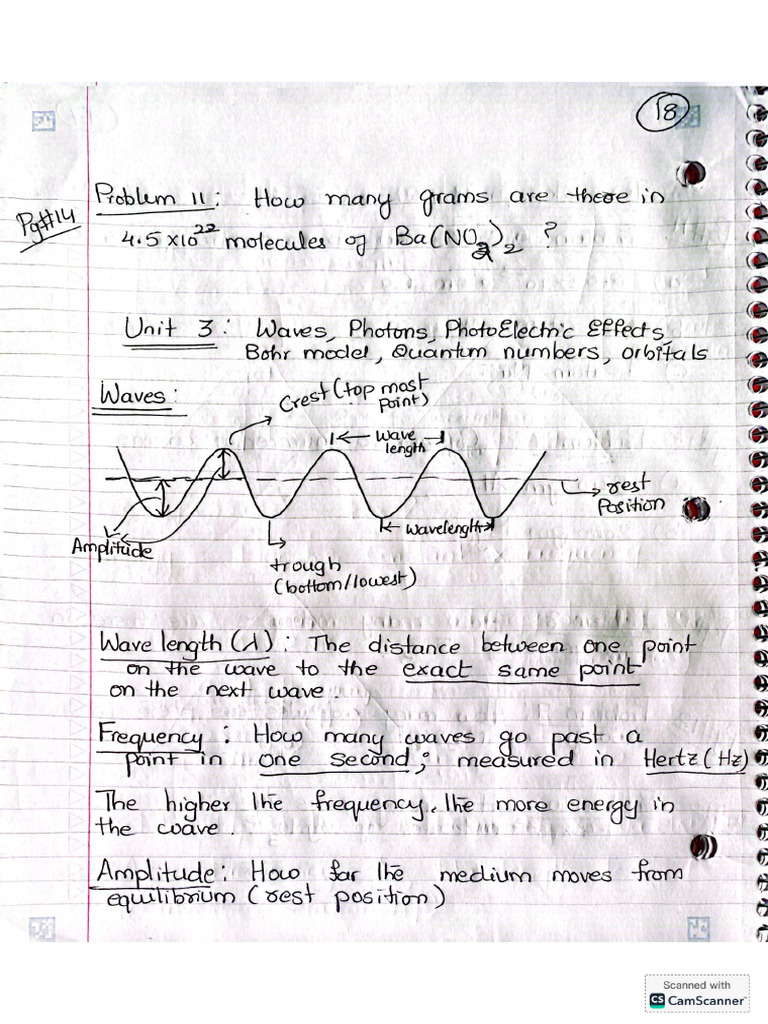 18
Pg#14
Problem 11: How many grams are there in
4.5×10²² molecules of Ba(NO₂)₂ ?
Unit 3: Waves, Photons, PhotoElectric Effects,
Bohr model, Quantum numbers, orbitals
Waves:
Crest (top most
point)
Wave
length
rest
Position
Amplitude
wavelength
trough
(bottom/lowest)
Wave length (λ): The distance between one point
on the wave to the exact same point
on the next wave.
Frequency: How many waves go past a
point in one second; measured in Hertz (Hz)
The higher the frequency, the more energy in
the wave.
Amplitude: How far the medium moves from
equilibrium (rest position)
Scanned with
CS CamScanner